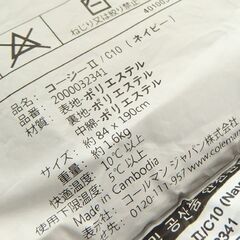 40100
ねじり又は絞り禁止
品名: コージーⅡ/C10 (ネイビー)
品番: 2000032341
材質: 表地:ポリエステル
裏地:ポリエステル
中綿:ポリエステル
サイズ: 約 84 x 190cm
重量: 約 1.6kg
快適温度: 10℃以上
使用下限温度: 5℃以上
Made in Cambodia
コールマン ジャパン株式会社
0120-111-957 www.colema
Ⅱ/C10 (Nav
341